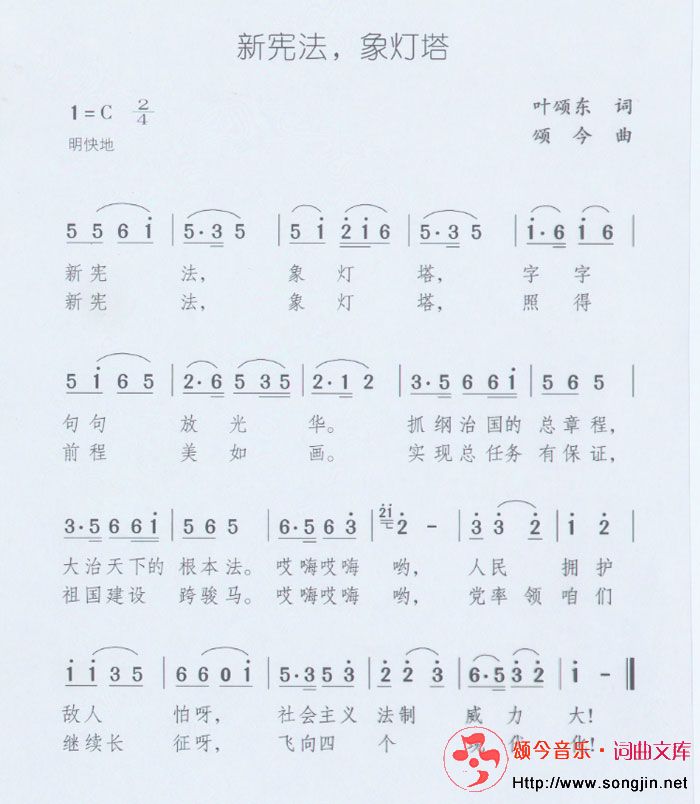 新宪法，象灯塔
1=C 2/4
叶颂东 词
明快地
颂今 曲
5 5 6 i | 5·3 5 | 5 i 2̇ i 6 | 5·3 5 | i·6 i 6 |
新宪 法， 象 灯 塔， 字 字
新宪 法， 象 灯 塔， 照 得
5 i 6 5 | 2·6 5 3 5 | 2·1 2 | 3·5 6 6 i | 5 6 5 |
句句 放光 华。 抓纲治国的 总章程，
前程 美如 画。 实现总任务 有保证，
3·5 6 6 i | 5 6 5 | 6·5 6 3̇ | 2̇i 2̇ - | 3̇ 3̇ 2̇ | i 2̇ |
大治天下的 根本法。 哎嗨哎嗨 哟， 人民 拥护
祖国建设 跨骏马。 哎嗨哎嗨 哟， 党率领 咱们
i i 3 5 | 6 6 0 i | 5·3 5 3̇ | 2̇ 2̇ 3̇ | 6·5 3̇ 2̇ | i - ‖
敌人 怕呀， 社会主义 法制 威力 大！
继续长 征呀， 飞向四 个
颂今音乐·词曲文库
Http://www.songjin.net